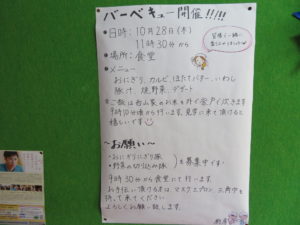 バーベキュー開催!!!!
●日時: 10月28日(木)
11時30分から
●場所: 食堂
●メニュー
おにぎり、カルビ、ほたてバター、いわし
豚汁、焼野菜、デザート
9時10分頃から行います。見学に来て頂けると
嬉しいです
～お願い～
・おにぎりにぎり隊
・野菜の切り込み隊
を募集中です!
9時30分から食堂にて行います。
お手伝い頂ける方は、マスク、エプロン、三角巾を
持って来てください
よろしくお願い致します。